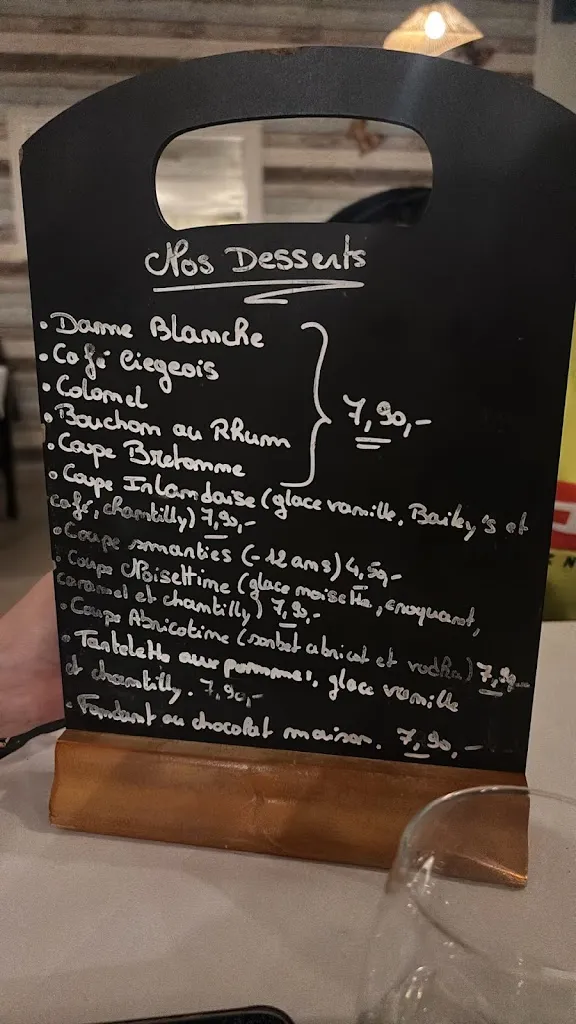 Nos Desserts
• Dame Blanche
• Café Liegeois
• Colonel
• Bouchon au Rhum
• Coupe Bretonne
7,90,-
• Coupe Irlandaise (glace vanille, Bailey's et
café, chantilly) 7,90,-
• Coupe smarties (-12 ans) 4,50,-
• Coupe Noisettine (glace noisette, croquant,
caramel et chantilly) 7,90,-
• Coupe Abricotine (sorbet abricot et vodka) 7,90,-
• Tartelette aux pommes, glace vanille
et chantilly. 7,90,-
• Fondant au chocolat maison. 7,90,-